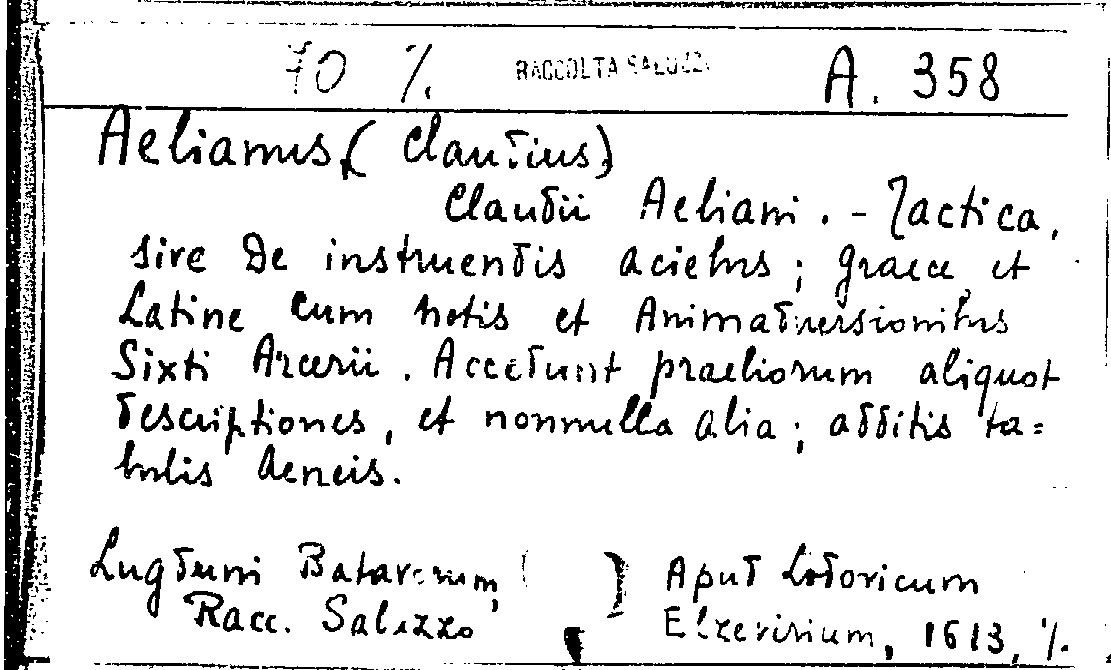 70 %. RACCOLTA SALUZZO A. 358
Aelianus, (Claudius)
Claudii Aeliani. - Tactica,
sive De instruendis aciebus; graece, et
Latine cum notis et Animadversionibus
Sixti Arcerii. Accedunt praeliorum aliquot
descriptiones, et nonnulla alia; additis ta=
bulis Aeneis.
Lugduni Batavorum, Apud Lodovicum
Racc. Saluzzo Elzevirium, 1613, %.